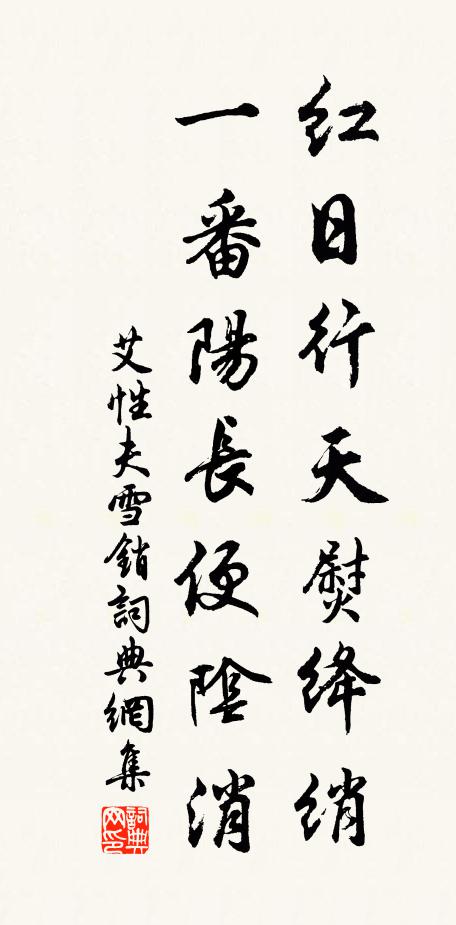 紅日行天熨絳綃
一番陽長便陰消
艾性夫雪銷詞典網集
詞典網印